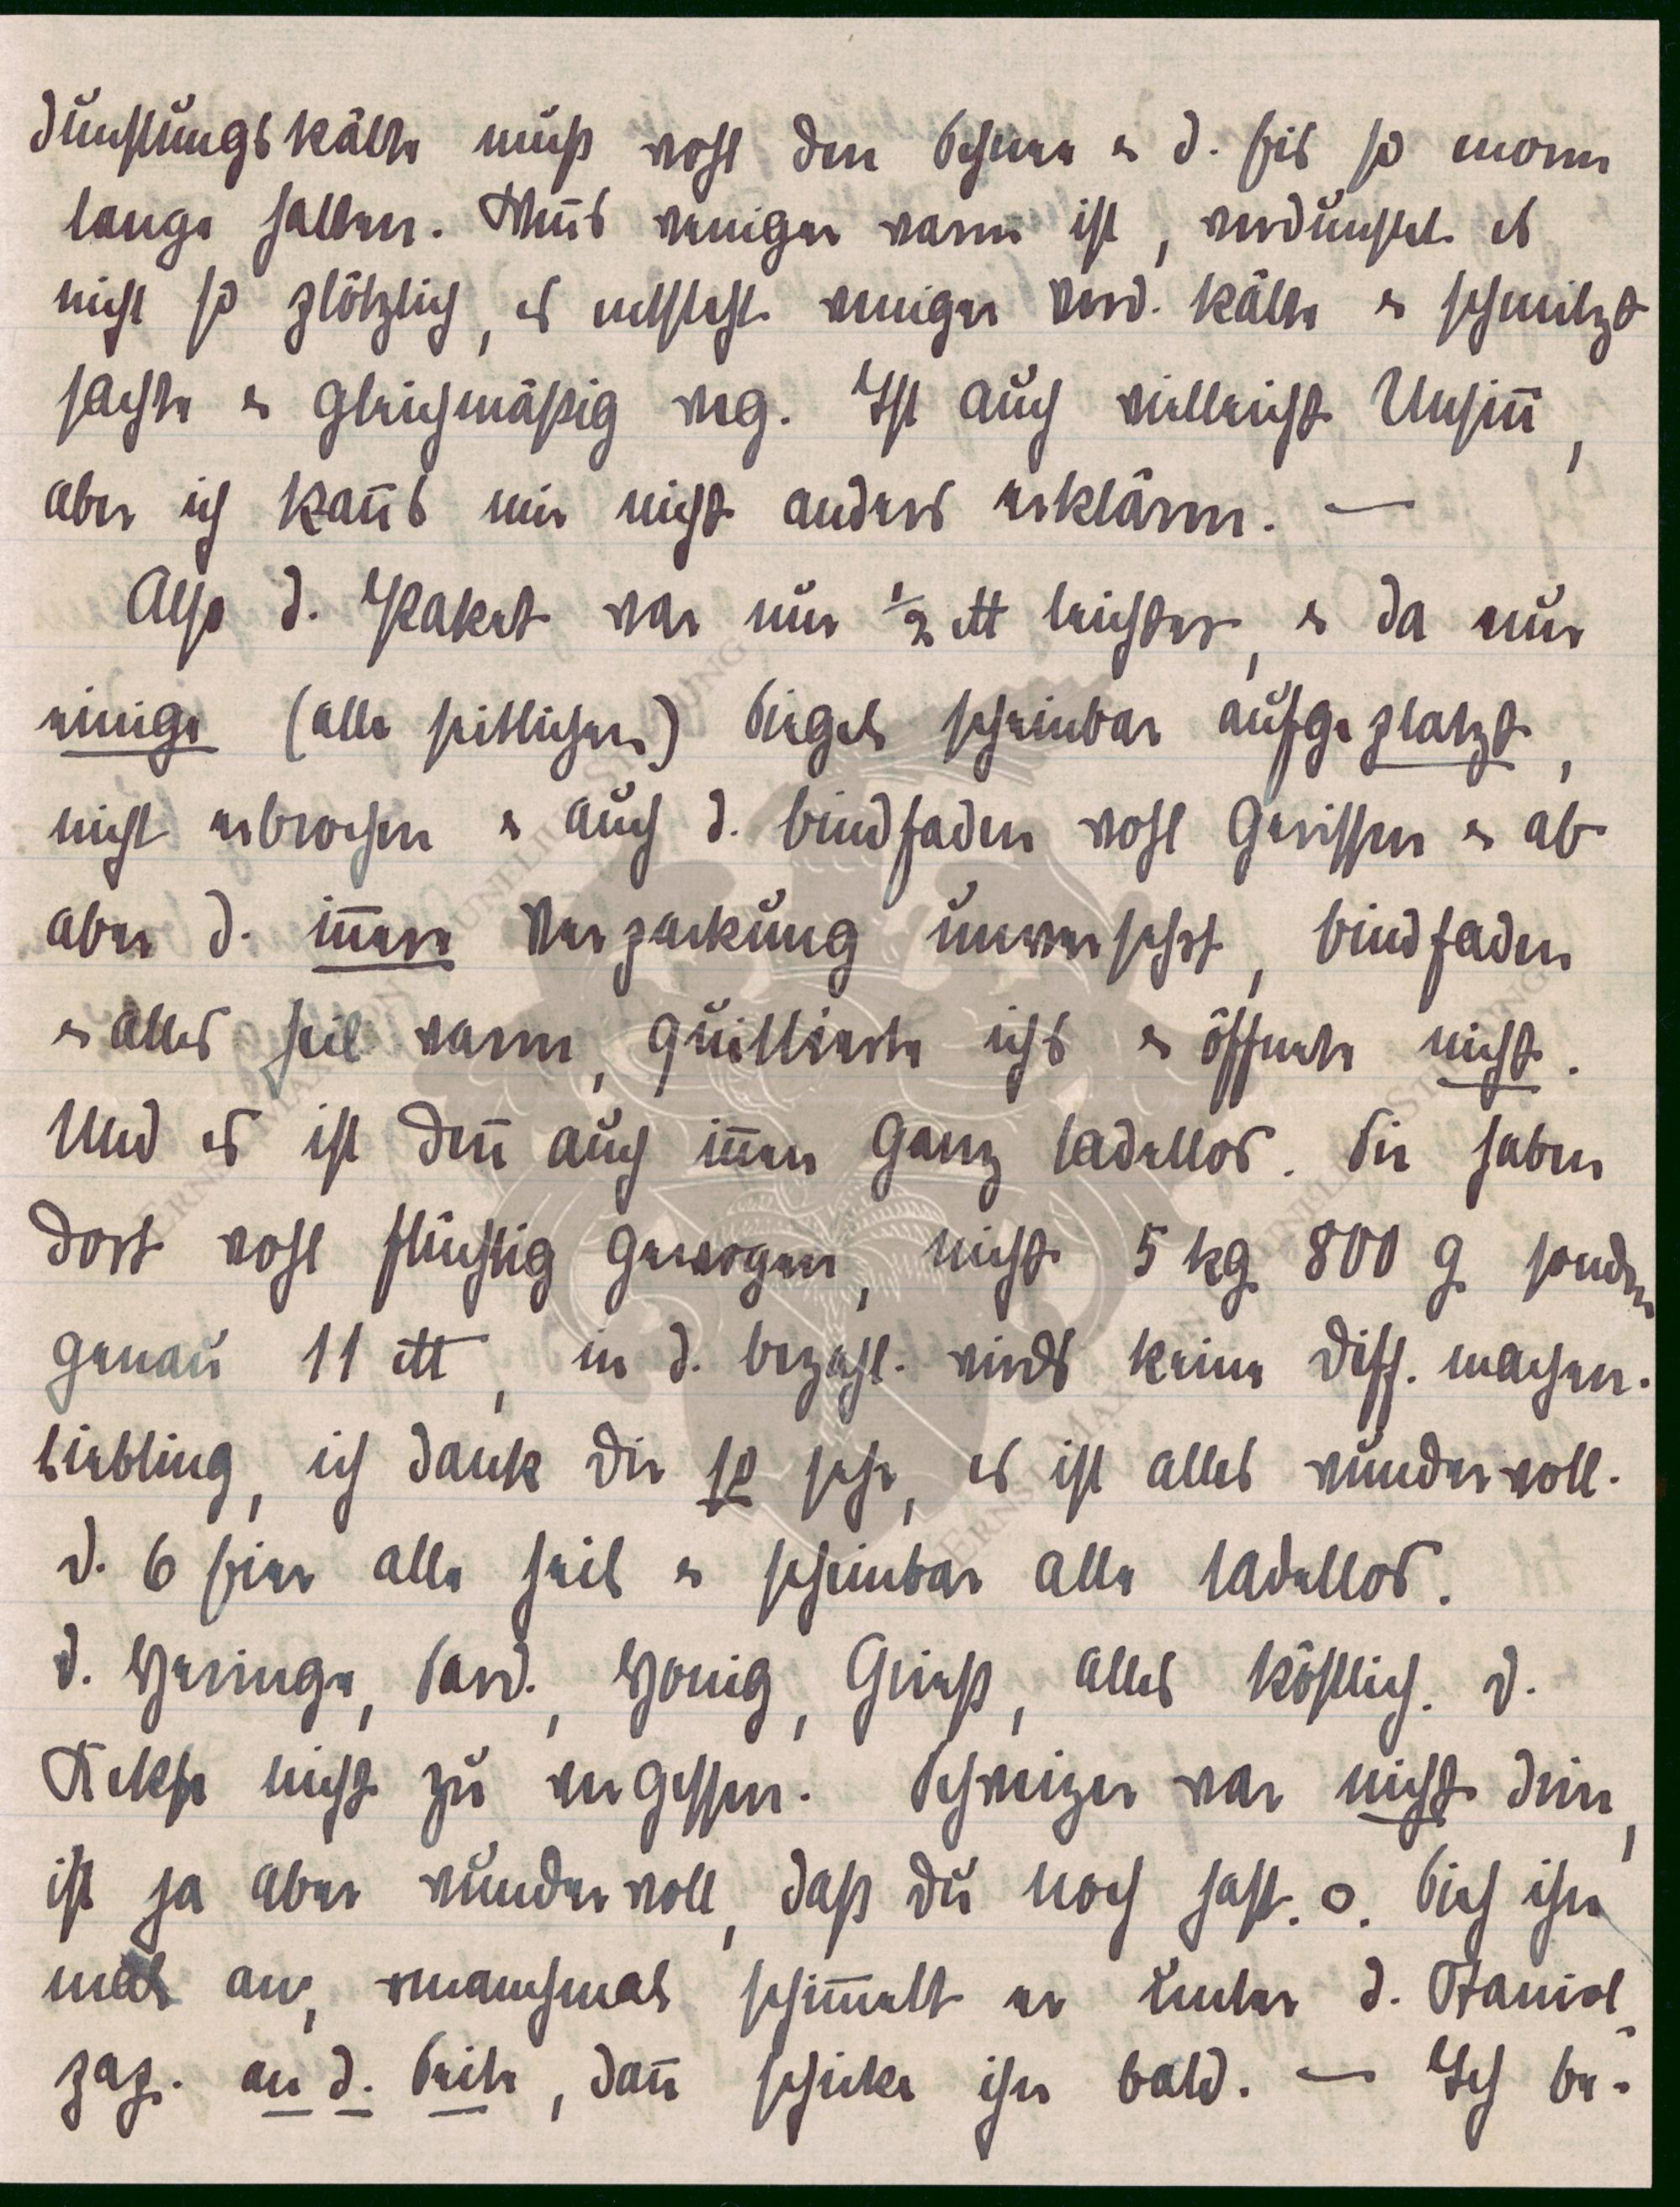 dunstungskälte muß wohl den Schnee & d. Eis so enorm
lange halten. Wen̄s weniger warm ist, verdunstet es
nicht so plötzlich, es entsteht weniger Verd. kälte & schmilzt
sachte & gleichmäßig weg. Ist auch vielleicht Unsin̄,
aber ich kan̄s mir nicht anders erklären. —
Also d. Paket war nur ½ ℔ leichter, & da nur
einige (alle seitlichen) Siegel scheinbar aufgeplatzt,
nicht erbrochen & auch d. Bindfaden wohl gerissen & ab
aber d. in̄ere Verpackung unversehrt, Bindfaden
& alles heil waren, quittierte ichs & öffnete nicht.
Und es ist den̄ auch in̄en ganz tadellos. Sie haben
dort wohl flüchtig gewogen, nicht 5 kg 800 g sondern
genau 11 ℔, in d. Bezahl. wirds keine Diff. machen.
Liebling, ich dank Dir so sehr, es ist alles wundervoll.
D. 6 Eier alle heil & scheinbar alle tadellos.
D. Heringe, Sard., Honig, Grieß, alles köstlich. D.
Kekse nicht zu vergessen. Schweizer war nicht drin,
ist ja aber wundervoll, daß Du noch hast. o. Sieh ihn
mal an, manchmal schim̄elt er unter d. Staniol-
pap. an d. Seite, dan̄ schicke ihn bald. — Ich be-
ERNST MAX VON GRUNELIUS STIFTUNG